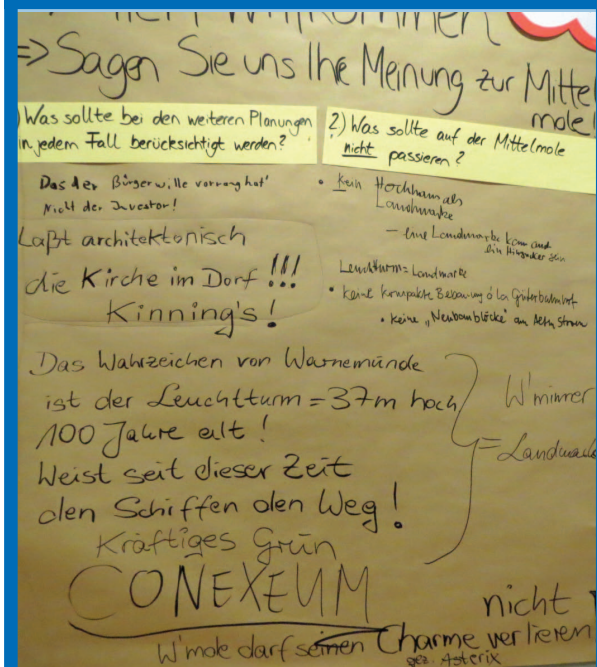 Herzlich Willkommen
=> Sagen Sie uns Ihre Meinung zur Mittel
mole!
1) Was sollte bei den weiteren Planungen
in jedem Fall berücksichtigt werden?
Das der Bürgerwille vorrang hat'
Nicht der Investor!
Laßt architektonisch
die Kirche im Dorf !!!
Kinning's!
2.) Was sollte auf der Mittelmole
nicht passieren?
• kein Hochhaus als
Landmarke
– eine Landmarke kann auch
ein Hingucker sein
Leuchtturm = Landmarke
• keine kompakte Bebauung á la Güterbahnhof
• keine „Neubaublöcke" am Alten Strom
Das Wahrzeichen von Warnemünde
ist der Leuchtturm = 37m hoch
100 Jahre alt!
Weist seit dieser Zeit
den Schiffen den Weg!
W'münner
= Landmark
Kräftiges Grün
CONEXEUM
nicht
W'mole darf seinen Charme verlieren
gez. Asterix